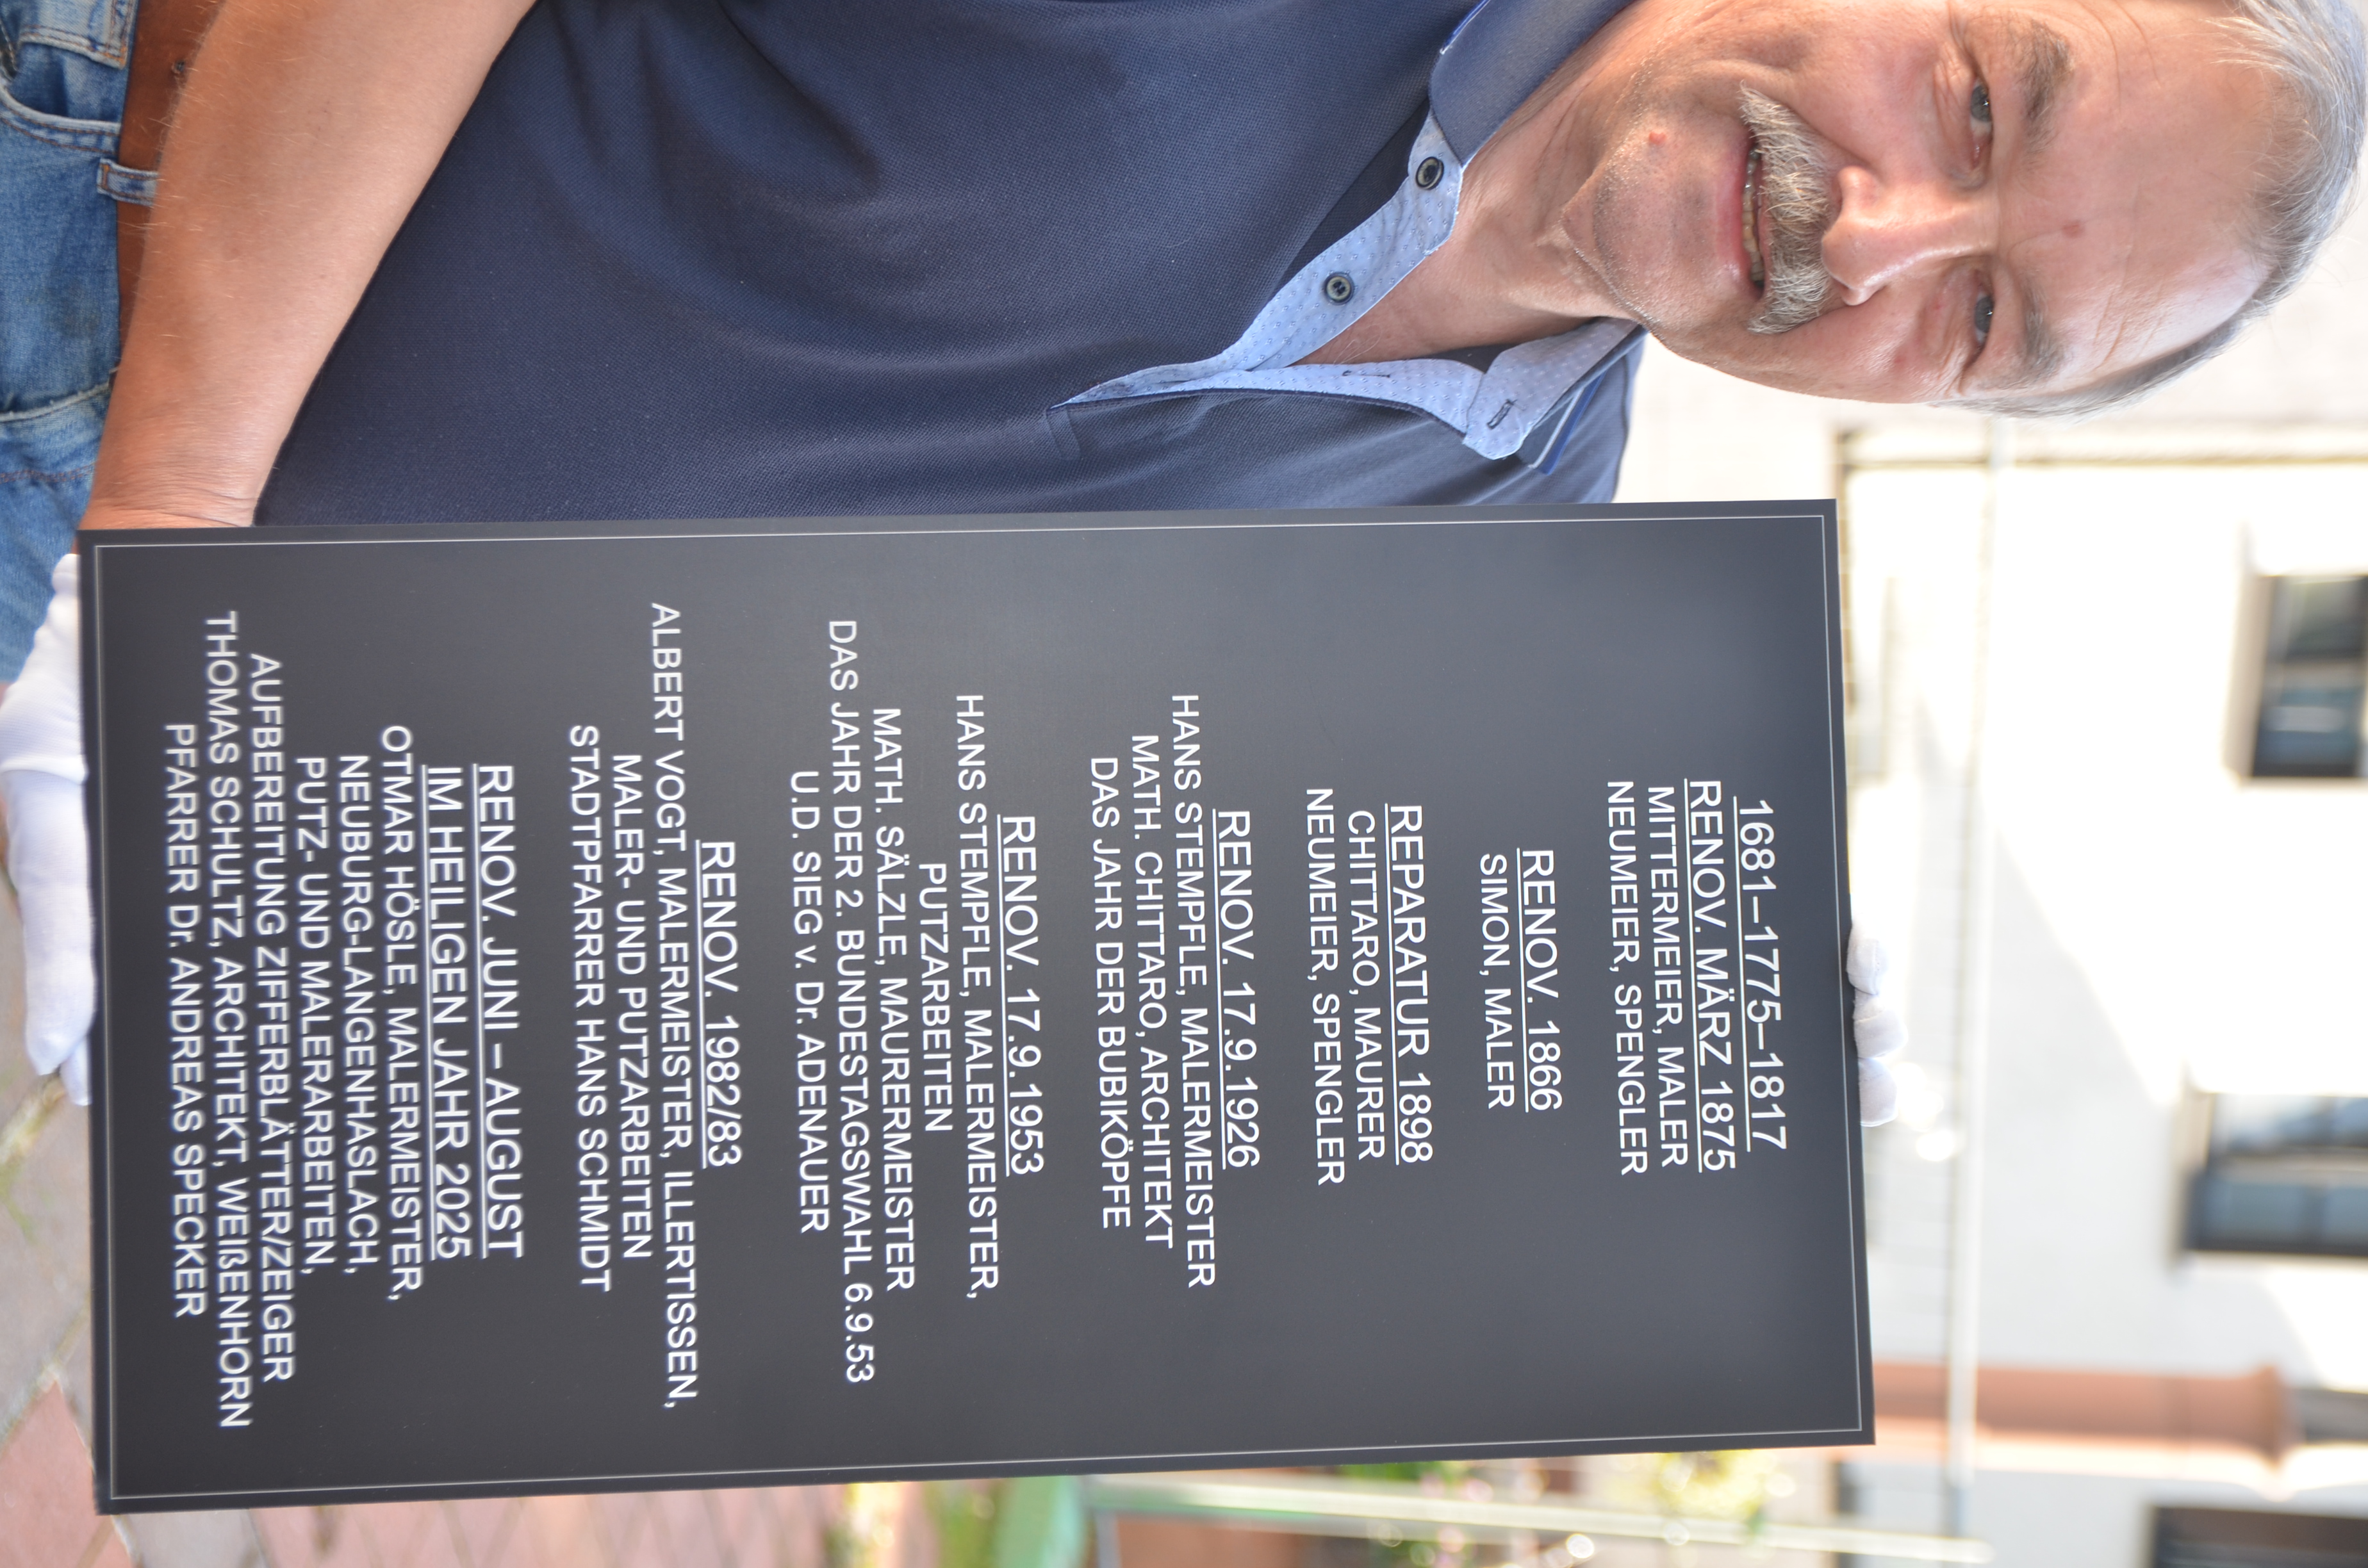 1681–1775–1817
RENOV. MÄRZ 1875
MITTERMEIER, MALER
NEUMEIER, SPENGLER
RENOV. 1866
SIMON, MALER
REPARATUR 1898
CHITTARO, MAURER
NEUMEIER, SPENGLER
RENOV. 17.9.1926
HANS STEMPFLE, MALERMEISTER
MATH. CHITTARO, ARCHITEKT
DAS JAHR DER BUBIKÖPFE
RENOV. 17.9.1953
HANS STEMPFLE, MALERMEISTER,
PUTZARBEITEN
MATH. SÄLZLE, MAURERMEISTER
DAS JAHR DER 2. BUNDESTAGSWAHL 6.9.53
U.D. SIEG v. Dr. ADENAUER
RENOV. 1982/83
ALBERT VOGT, MALERMEISTER, ILLERTISSEN,
MALER- UND PUTZARBEITEN
STADTPFARRER HANS SCHMIDT
RENOV. JUNI – AUGUST
IM HEILIGEN JAHR 2025
OTMAR HÖSLE, MALERMEISTER,
NEUBURG-LANGENHASLACH,
PUTZ- UND MALERARBEITEN,
AUFBEREITUNG ZIFFERBLÄTTER/ZEIGER
THOMAS SCHULTZ, ARCHITEKT, WEIßENHORN
PFARRER Dr. ANDREAS SPECKER